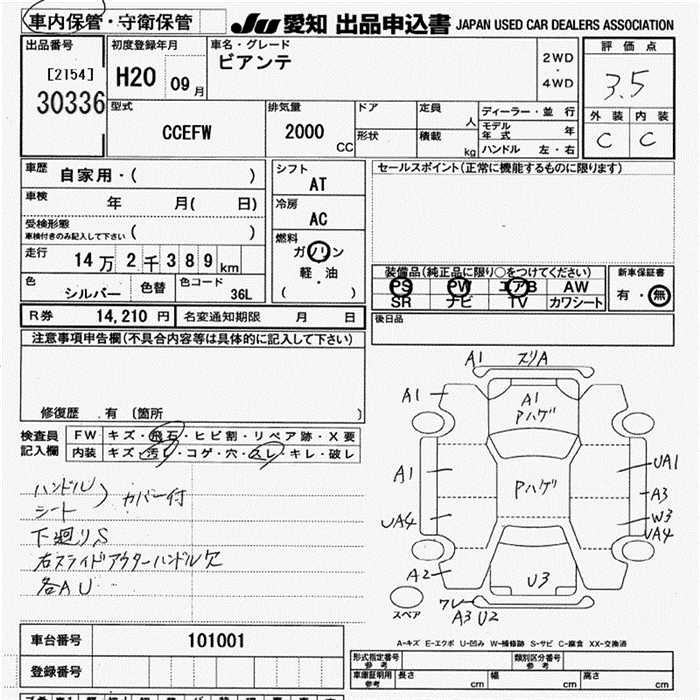 車内保管・守衛保管
JU 愛知 出品申込書 JAPAN USED CAR DEALERS ASSOCIATION
出品番号
[2154]
30336
初度登録年月
H20 09月
車名・グレード
ビアンテ
2WD
・
4WD
評価点
3.5
外装 内装
C C
型式
CCEFW
排気量
2000 CC
ドア
形状
定員 人
積載 kg
ディーラー・並行
モデル年式 年
ハンドル 左・右
車歴 自家用・( )
車検 年 月( 日)
受検形態
車検付きのみ記入して下さい ( )
走行 14万2千389km
色 シルバー 色替 色コード 36L
シフト
AT
冷房
AC
燃料
ガソリン
軽・油
( )
セールスポイント(正常に機能するものに限ります)
装備品(純正品に限り○をつけてください)
PS PW エアB AW
SR ナビ TV カワシート
新車保証書
有・無
後日品
R券 14,210円 名変通知期限 月 日
注意事項申告欄(不具合内容等は具体的に記入して下さい)
修復歴 有 〔箇所 〕
検査員記入欄
FW キズ・飛石・ヒビ割・リペア跡・X要
内装 キズ・汚レ・コゲ・穴・スレ・キレ・破レ
ハンドル
シート ) カバー付
下廻りS
右スライドアウターハンドル欠
各AU
A1 ズリA
A1 A1
Pハゲ
A1 Pハゲ UA1
A3
UA4 W3
UA4
A2 U3
スペア ワレ
A3 U2
A-キズ E-エクボ U-凹み W-補修跡 S-サビ C-腐食 XX-交換済
車台番号 101001
登録番号
形式指定番号
参考
類別区分番号
参考
車庫証明用
参考
長さ cm 幅 cm 高さ cm